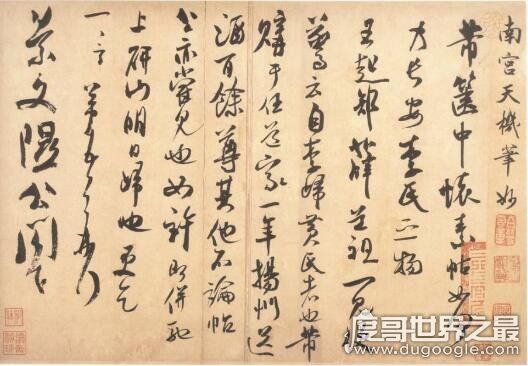 南宮天機筆妙
芾篋中懷素帖如何
乃長安李氏之物
王起部薛道祖一見便
驚云自李歸黃氏者也芾
購于任道家一年揚州送
酒百餘尊其他不論帖
公亦嘗見也如許即併馳
上研山明日歸也更乞
一言芾頓首再拜
景文隰公閣下
度哥世界之最
www.dugoogle.com